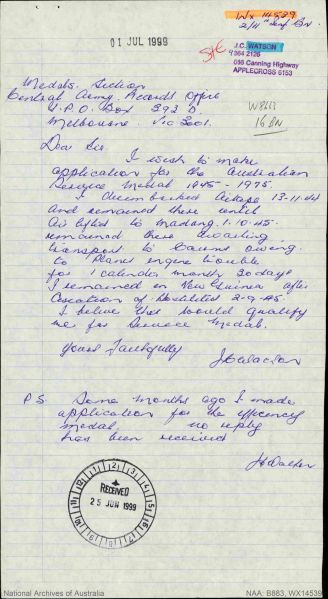 WX 14539
2/11 Inf Bn
01 JUL 1999
J.C. WATSON
9364 2126
Canning Highway
APPLECROSS 6153
W8663
16 BN
Medals Section
Central Army Records Office
G.P.O. Box 393 D
Melbourne Vic 3001.
Dear Sir
I wish to make
application for the Australian
Service Medal 1945 - 1975.
I disembarked Aitape 13-11-44
and remained there until
Air lifted to Madang. 1.10.45.
remained there awaiting
transport to Cairns owing
to Planes engine trouble
for 1 calender month 20 days
I remained in New Guinea after
Cesation of Hostilities 2-9-45
I believe this would qualify
me for Service Medal.
Yours Faithfully
J C Watson
P S Some months ago I made
application for the efficency
medal, no reply
has been received
J C Watson
12 1 2 3 4 5 6 7 8 9 10 11
RECEIVED
25 JUN 1999
National Archives of Australia
NAA: B883, WX14539